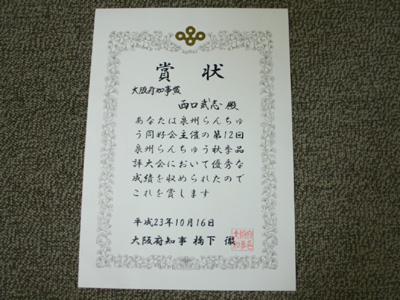 賞状
大阪府知事賞
西口武志殿
あなたは泉州らんちゅ
う同好会主催の第12回
泉州らんちゅう秋季品
評大会において優秀な
成績を収められたので
これを賞します
平成23年10月16日
大阪府知事 橋下 徹